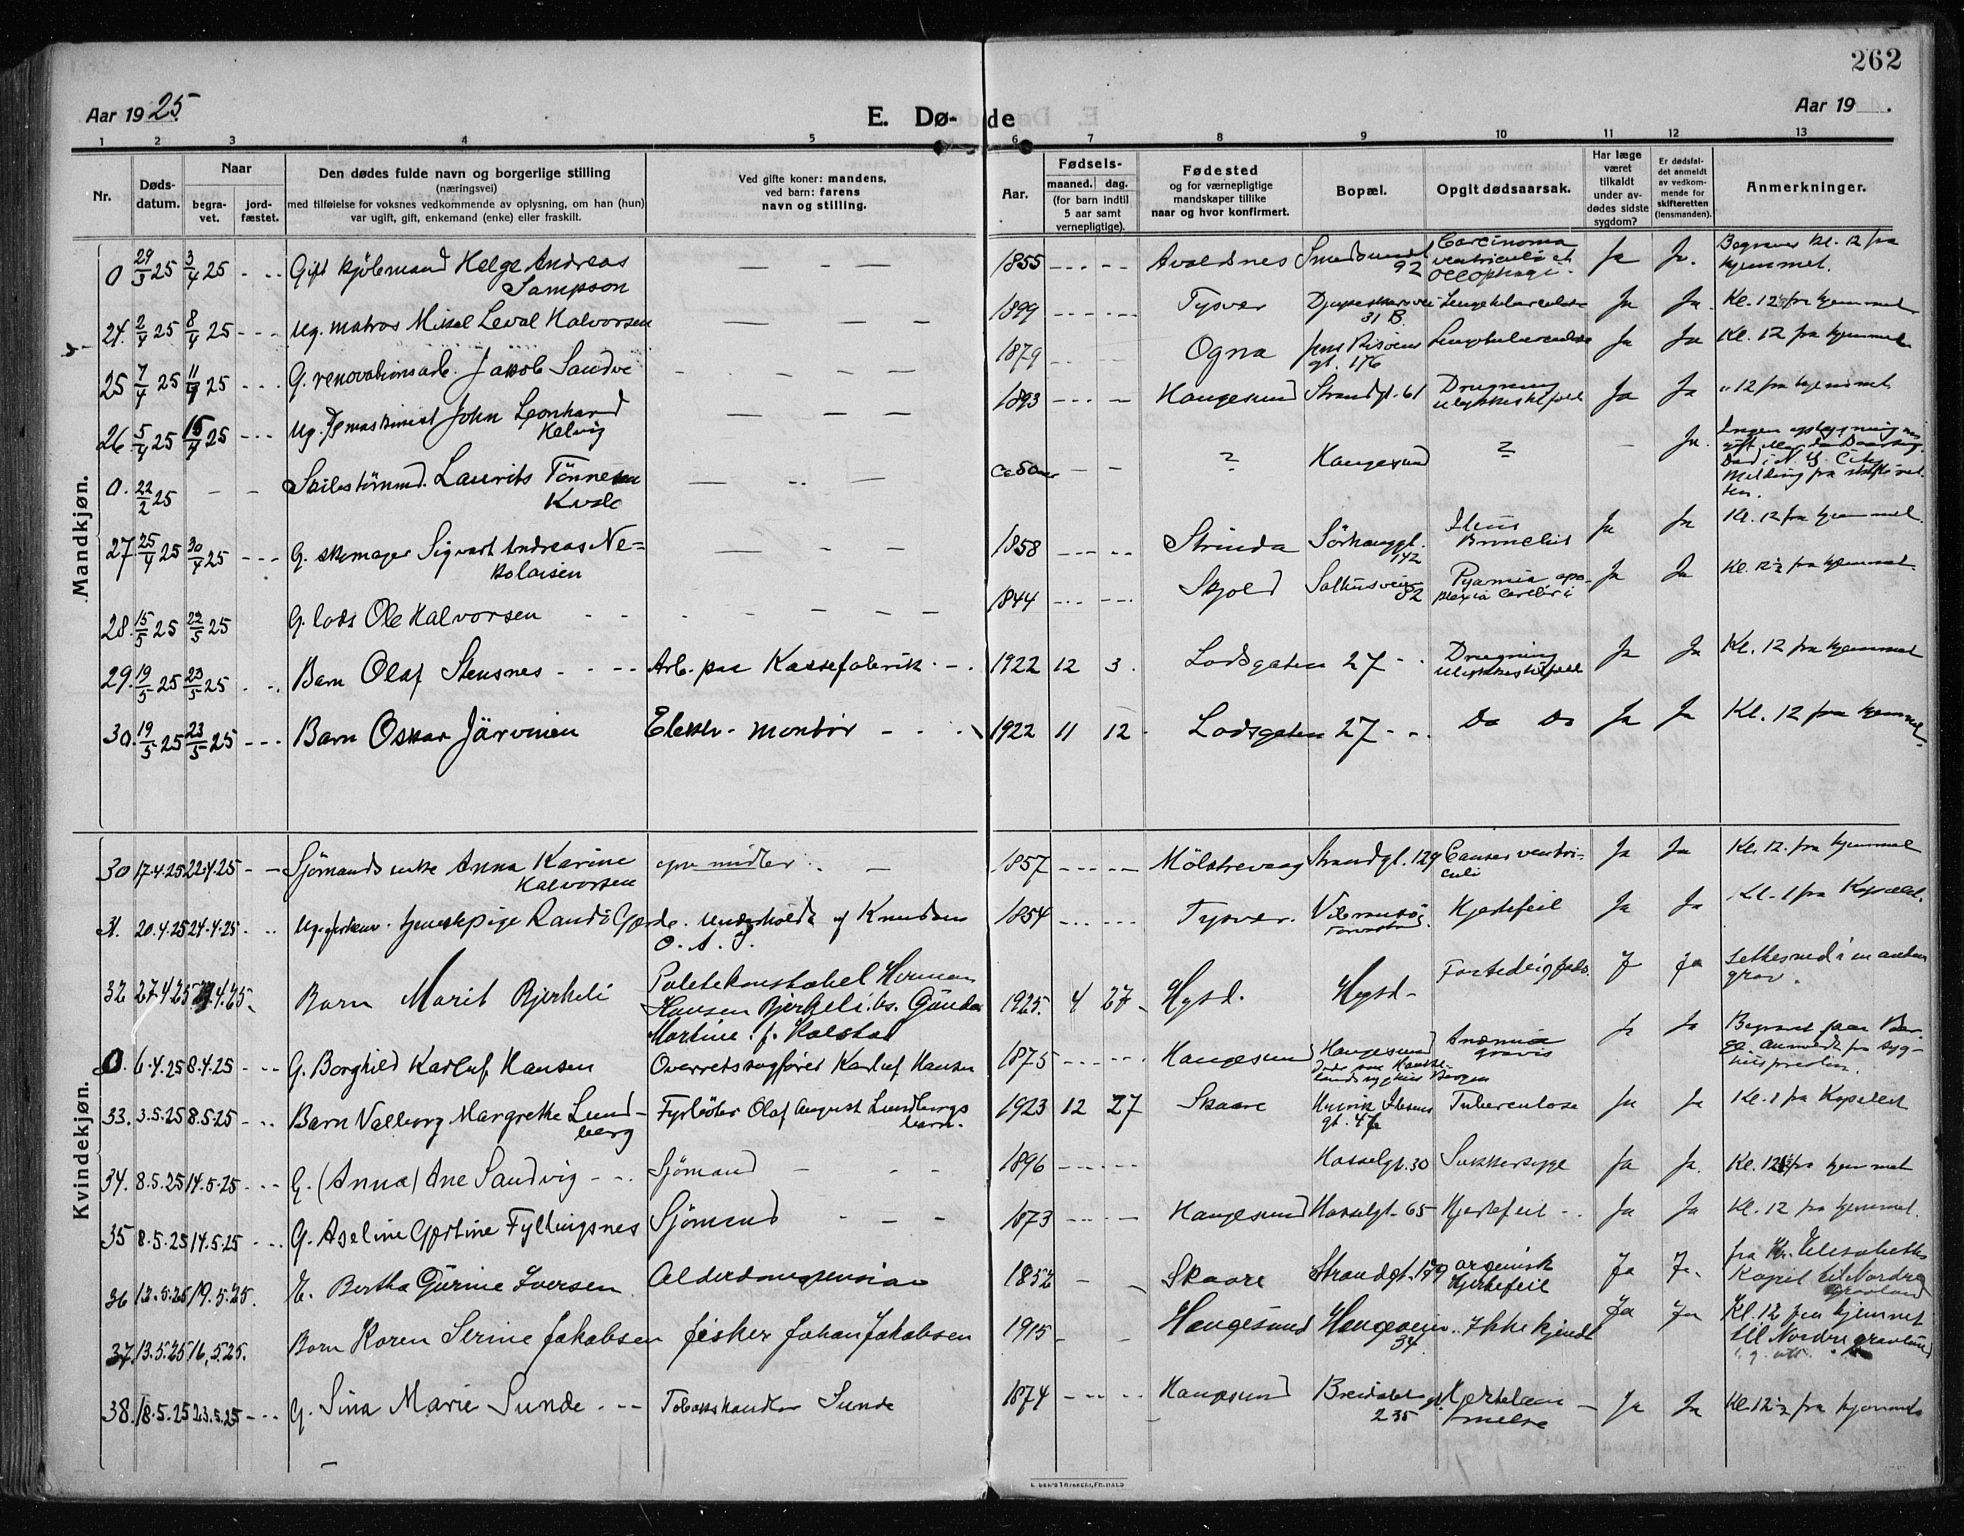 262
Aar 1925.
E. Dø-
de
Aar 19 .
1 2 3 4 5 6 7 8 9 10 11 12 13
Nr.
Døds-
datum.
Naar
begra-
vet.
jord-
fæstet.
Den dødes fulde navn og borgerlige stilling
(næringsvei)
med tilføielse for voksnes vedkommende av oplysning, om han (hun)
var ugift, gift, enkemand (enke) eller fraskilt.
Ved gifte koner: mandens,
ved barn: farens
navn og stilling.
Aar.
Fødsels-
maaned. dag.
(for barn indtil
5 aar samt
vernepligtige).
Fødested
og for værnepligtige
mandskaper tillike
naar og hvor konfirmert.
Bopæl.
Opgit dødsaarsak.
Har læge
været
tilkaldt
under av-
dødes sidste
sygdom?
Er dødsfal-
det anmeldt
av vedkom-
mende for
skifteretten
(lensmanden).
Anmerkninger.
Mandkjøn.
0 29/3 25 3/4 25 Gift kjøbmand Helge Andreas
Sampson
1855 Avaldnes Smedsundet
92
Carcinoma
ventriculi et
Ja Ja. Begraves kl. 12 fra
hjemmet.
24. 2/4 25 8/4 25 Ug. matros Mikal Leval Halvorsen
1899 Tysver 31 B. Lungetuberculose Ja Ja Kl. 12½ fra hjemmet
25 7/4 25 11/4 25 G. renovationsarb. Jakob Sandve
1879 Ogna Jens Risøens
gt. 176
Lungetuberculose Ja Ja Kl. 12 fra hjemmet
26 5/4 25 15/4 25 Ug. John Leonhard
Helvig
1893 Haugesund Strandgt. 61 Drugning
ulykkestilfeld
Ja Ja " 12 fra hjemmet
0. 22/2 25 Laurits Tönnesen
Kvale
Ca 50 aar ? Haugesund ? Ja. Ingen oplysning om
gift eller
Død i N. Y. City
Melding fra skifteret-
ten.
27 25/4 25 30/4 25 G. skomager Sigvart Andreas Ne-
kolaisen
1858 Strinda Sörhauggt.
142
Ileus
Bronchit
Ja Ja Kl. 12 fra hjemmet.
28. 15/5 25 22/5 25 G. lods Ole Halvorsen
1844 Skjold Salhusveien
82
Pyæmia apo-
plexia cerebri
Ja Ja Kl. 12½ fra hjemmet
29. 19/5 25 23/5 25 Barn Olaf Stensnes Arb. paa Kassefabrik
1922 12 3. Lodsgaten 27 Drugning
ulykkestilfeld
Ja Ja Kl. 12 fra hjemmet
30. 19/5 25 23/5 25 Barn Oskar Järvinen Elektr. montör
1922 11 12 Lodsgaten 27 Do Do Ja Ja Kl. 12 fra hjemmet.
Kvindekjøn.
30 17.4.25 22.4.25 Sjömands enke Anna Karine
Halvorsen
egne midler
1857 Mölstrevaag Strandgt. 129 Cancer ventri-
culi
Ja Ja Kl. 12 fra hjemmet
31. 20.4.25 24.4.25 tjenestpige Randi Gjerde. Underholdt af Knudsen
O. A. S.
1854 Tysver. Hjertefeil Ja Ja Kl. 1 fra Kapellet.
32 27.4.25 4.25 Barn Marit Bjerkeli Politikonstabel Herman
Hansen Bjerkeli. hs. Gunda
Martine f. Kolstad
1925. 4 27 Hgsd. Hgsd Ja Ja settes ned i en anden
grav.
0. 6.4.25 8.4.25 G. Borghild Karluf Hansen Overretssagförer Karluf Hansen
1875 Haugesund Haugesund
Anæmia
gravis
Ja Ja
33. 3.5.25 8.5.25 Barn Valborg Margrethe Lund-
berg
Fyrböter Olaf August Lundbergs
barn.
1923 12 27 Skaare Henrik Ibsens
gt. 47
Tuberculose Ja Ja Kl. 1 fra Kapellet
34. 8.5.25 14.5.25 G. (Anna) Ane Sandvig Sjömand
1896 Hasselgt. 30 Sukkersyge Ja Ja. Kl. 12½ fra hjemmet
35 8.5.25 14.5.25 G. Aseline Gjertine Fyllingsnes Sjömand
1873 Haugesund Hasselgt. 65 Hjertefeil Ja Ja Kl. 12 fra hjemmet.
36 12.5.25 19.5.25. E. Bertha Gurine Iversen Alderdomspension
1852 Skaare Strandgt. 179 organisk
hjertefeil
Ja Ja. fra Elisabeths
Kapel til Nordre
Gravlund
37. 13.5.25 16.5.25. Barn Karen Serine Jakobsen fisker Johan Jakobsen
1915 Haugesund Haugeveien
34
Ikke kjendt Ja Ja Kl. 12 fra hjemmet
til Nordre gravlund
38. 18.5.25 23.5.25 G. Sina Marie Sunde Tobakshandler Sunde
1874 Haugesund Breidablikgt.
235
Hjertelam-
melse
Ja Ja Kl. 12½ fra hjemmet